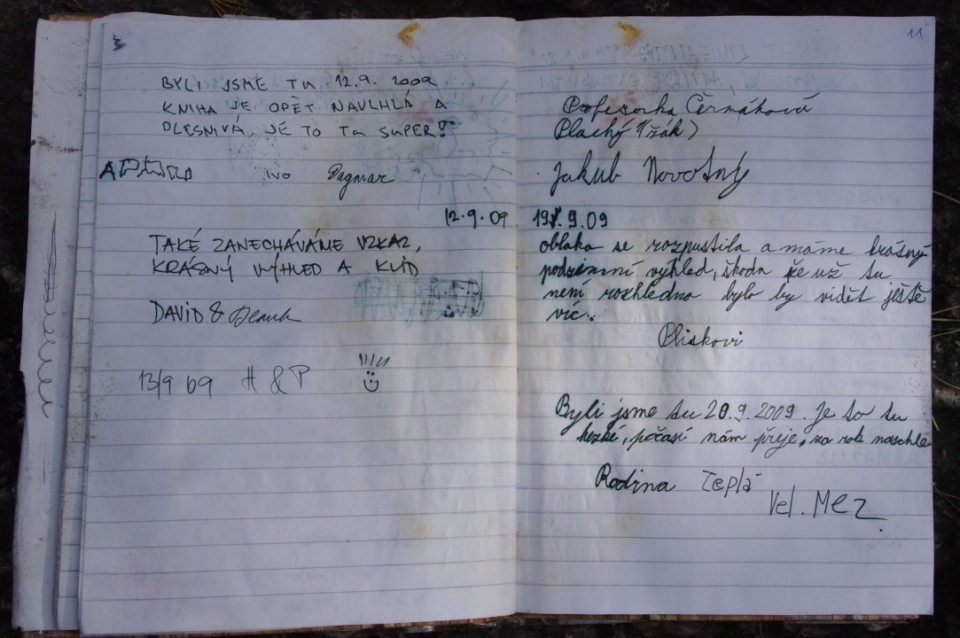 BYLI JSME TU 12.9.2009
KNIHA JE OPĚT NAVLHLÁ A
PLESNIVÁ, JE TO TU SUPER!
Ivo Dagmar
12.9.09
TAKÉ ZANECHÁVÁME VZKAZ,
KRÁSNÝ VÝHLED A KLID
DAVID &
13/9 09 H & P
11
Profesorka Černáková
Plachý (žák)
Jakub Novotný
19.9.09
obloha se rozpustila a máme krásný
podzimní výhled, škoda že už tu
není rozhledna bylo by vidět ještě
víc.
Pliskovi
Byli jsme tu 20.9.2009. Je to tu
hezké, počasí nám přeje, za rok naschle
Rodina Teplá
Vel. Mez.